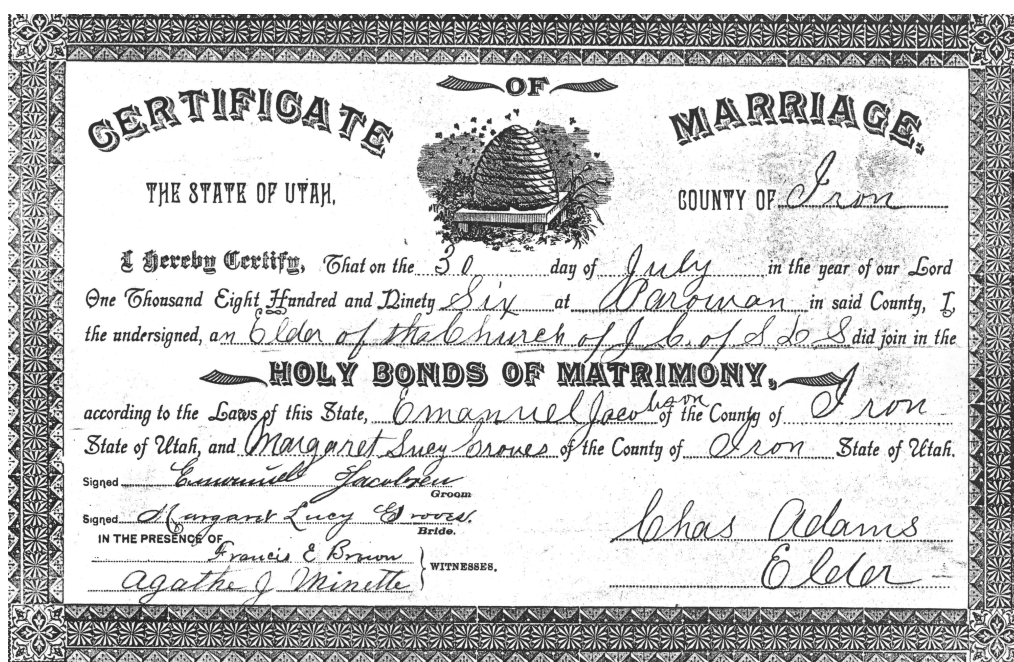 CERTIFICATE OF MARRIAGE.
THE STATE OF UTAH, COUNTY OF Iron
I Hereby Certify, That on the 30 day of July in the year of our Lord
One Thousand Eight Hundred and Ninety Six at Parowan in said County, I,
the undersigned, an Elder of the Church of J. C. of L D S did join in the
HOLY BONDS OF MATRIMONY,
according to the Laws of this State, Emanuel Jacobson of the County of Iron
State of Utah, and Margaret Lucy Groves of the County of Iron State of Utah.
Signed Emanuel Jacobsen
Groom
Signed Margaret Lucy Groves.
Bride.
IN THE PRESENCE OF
Francis E Brown
Agathe J Minette
WITNESSES.
Chas Adams
Elder